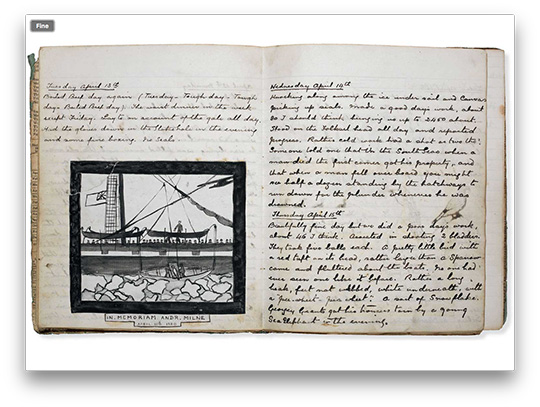 Fine
Tuesday April 13th
Boiled Beef day again (Tuesday - Tough day - Tough
days Boiled Beef day). The worst dinner in the week
except Friday. Lay to on account of the gale all day.
Had the gloves down in the Stokehole in the evening
and some fine boxing. No Seals.
IN. MEMORIAM. ANDR. MILNE
APRIL 1880
Wednesday April 14th
Knocking along among the ice under sail and Canvas
picking up seals. Made a good days work, about
80 I should think, bringing us up to 2450 about.
Stood on the Fo'csle head all day and reported
progress. Rather cold work
Someone told one that in the South Seas when a
man died the first comer got his property, and
that when a man fell over board you might
see half a dozen standing by the hatchways to
run down for the plunder whenever he was
drowned.
Thursday April 15th
Beautifully fine day but we did a poor days work,
about 46 I think. Assisted in shooting 2 bladders.
They took five balls each. A pretty little bird with
a red tuft on its head, rather larger than a Sparrow
came and fluttered about the boats. No one had
ever seen one like it before. Rather a long
beak, feet not webbed, white underneath, with
a "pee wheet - pee wheet". A sort of Snowflake.
Georgey Grant got his trousers torn by a young
Sea Elephant in the evening.